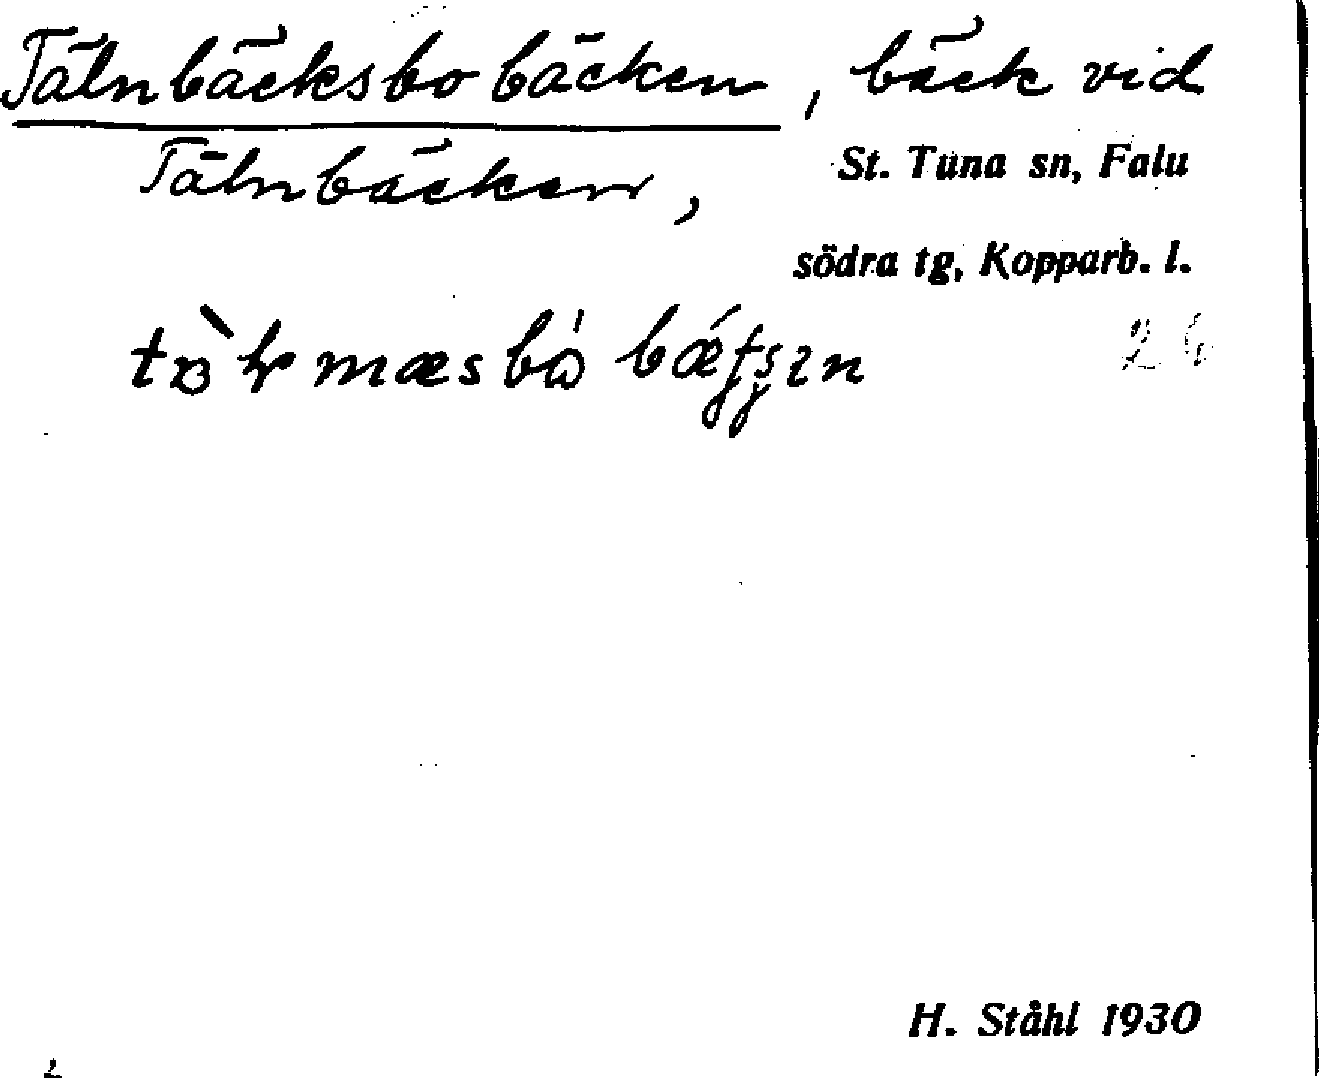 Tälnbäcksbobäcken, bäck vid
Tälnbäcken,
St. Tuna sn, Falu
södra tg, Kopparb. l.
26
H. Ståhl 1930